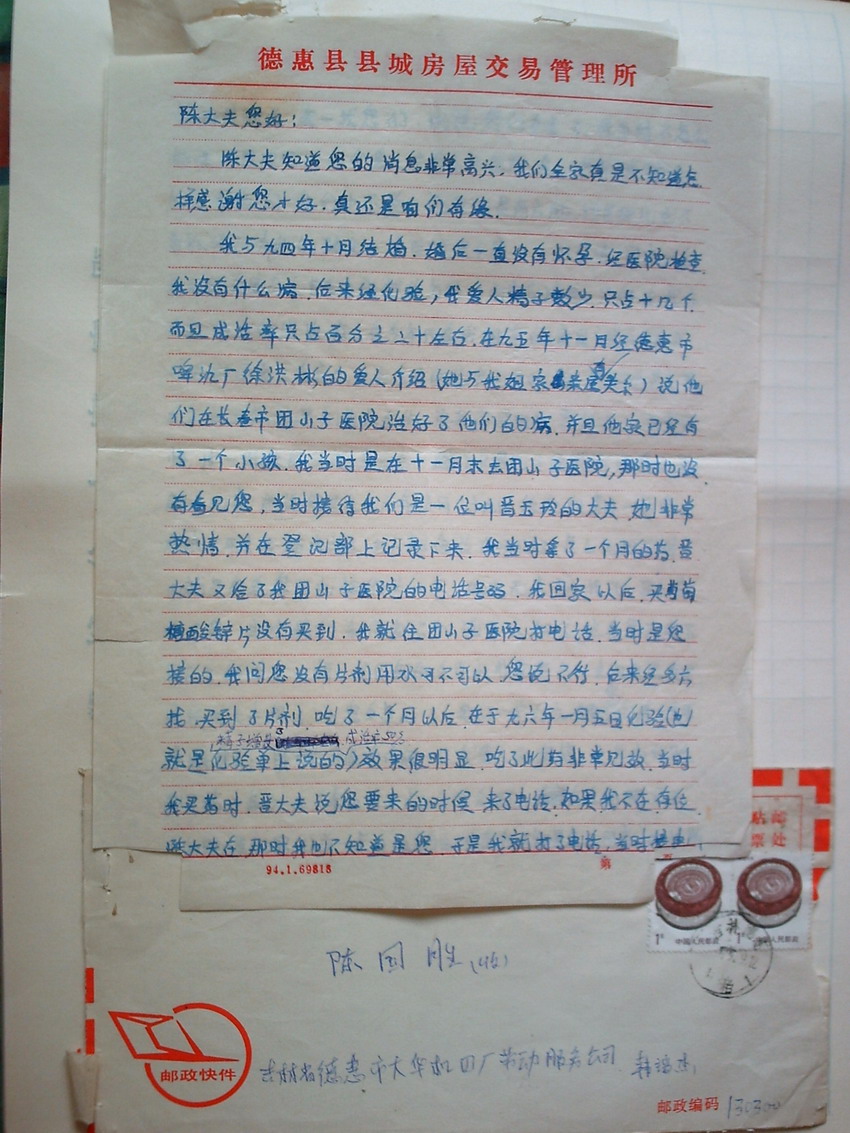 德惠县县城房屋交易管理所
陈大夫您好：
陈大夫知道您的消息非常高兴，我们全家真是不知道怎
样感谢您才好．真还是咱们有缘．
我与九四年十月结婚．婚后一直没有怀孕．经医院检查
我没有什么病．后来经化验，我爱人精子数少．只占十几个．
而且成活率只占百分之二十左右．在九五年十一月经德惠市
啤酒厂徐洪彬的爱人介绍（她与我姐家 亲属关系）说他
们在长春市团山子医院治好了他们的病．并且他家已经有
了一个小孩．我当时是在十一月末去团山子医院，那时也没
有看见您，当时接待我们是一位叫晋玉玲的大夫．她非常
热情．并在登记部上记录下来．我当时拿了一个月的药．晋
大夫又给了我团山子医院的电话号码．我回家以后．买葡萄
糖酸锌片没有买到．我就往团山子医院打电话．当时是您
接的．我问您没有片剂用水可不可以．您说不行．后来经多方
找．买到了片剂．吃了一个月以后．在于九六年一月五日化验（也
精子增多 成活率
就是化验单上说的）效果很明显．吃了此药非常见效．当时
我买药时．晋大夫说您要来的时候 来个电话．如果我不在有位
陈大夫在．那时我也不知道是您．于是我就打了电话，当时接电
94.1.69818
第
贴邮
票处
1分
中国人民邮政
1分
中国人民邮政
陈国胜（收）
邮政快件
吉林省德惠市大华机四厂劳动服务公司
邮政编码 130300